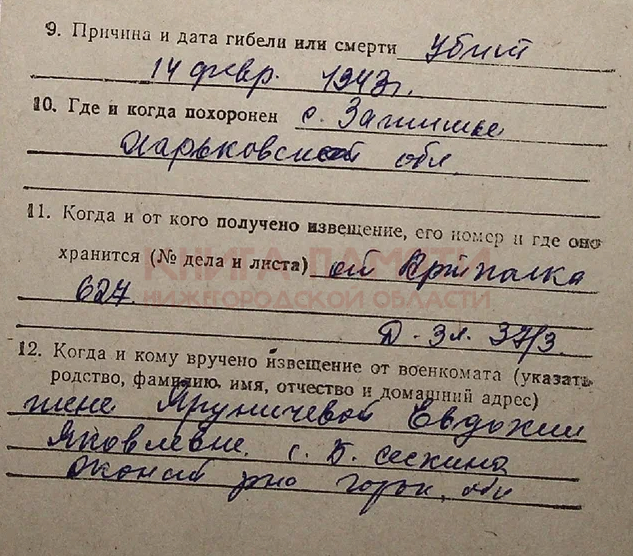 9. Причина и дата гибели или смерти убит
14 февр. 1943 г.
10. Где и когда похоронен с. Затишье
Харьковской обл.
11. Когда и от кого получено извещение, его номер и где оно
хранится (№ дела и листа)
КНИГА ПАМЯТИ
НИЖЕГОРОДСКОЙ ОБЛАСТИ
627.
Д-3 л. 37/3.
12. Когда и кому вручено извещение от военкомата (указать
родство, фамилию, имя, отчество и домашний адрес)
жене Яруничевой Евдокии
Яковлевне. с. Б.
горьк. обл